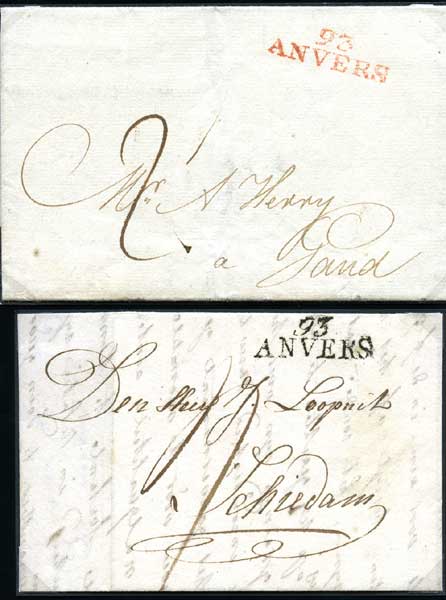 93
ANVERS
2
Mr. A Herry
a Gand
93
ANVERS
Den Heer J. Loopuit
a Schiedam